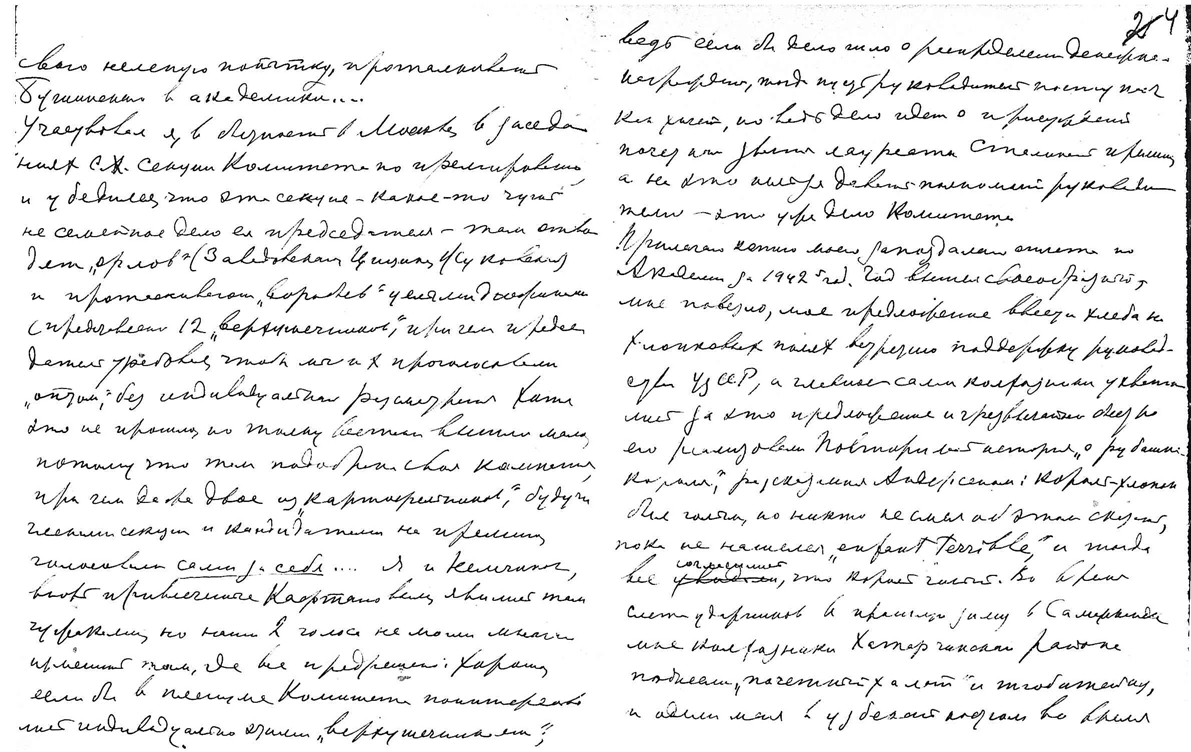 свою нелепую попытку, проталкивает
в академики....
Участвовал я, в Москве в заседа
ниях С.Х. секции Комитета по премированию,
и убедился, что эта секция – какое-то чуть
не семейное дело ея председателя – там отво
дят „орлов“ (Завадовская, Цицина, )
и протаскивают „воробьев“ целыми дюжинами
( 12 „верхушечников“, причем предсе
датель требовал, чтобы мы их проголосовали
„оптом“, без индивидуального рассмотрения. Хотя
это не прошло, но толку всетаки вышло мало,
потому что там подобралась своя компания,
причем даже двое из „картофельников“, будучи
членами секции и кандидатами на премию,
голосовали сами за себя.... Я и Келлер,
вновь привлеченные Кафтановым, явились там
чужаками, но наши 2 голоса не могли много
изменить там, где все предрешено. Хорошо,
если бы в пленуме Комитета поинтересова
лись индивидуально этими „верхушечниками“,
254
ведь если бы дело шло о распределении денежно-
награждения, тогда пусть руководители поступают
как хотят, но ведь дело идет о присуждении
почетного звания лауреата Сталинской премии,
а на это нельзя давать полномочий руководи
телю – это уже дело Комитета
Прилагаю копию моего запоздалого отчета по
Академии за 1942й год. Год вышел своеобразный,
мне повезло, мое предложение ввести хлеба на
хлопковых полях встретило поддержку руковод-
ства УзССР, а главное сами колхозники ухвати
лись за это предложение и чрезвычайно быстро
его реализовали. Повторилась история „о рубашке
короля“, рассказанная Андерсеном: король-хлопок
был голым, но никто не смел об этом сказать,
пока не нашелся „enfant terrible“, и тогда
все согласились, что король голый. Во время
слета ударников в прошлую зиму в Самарканде
мне колхозники Хатырчинского района
поднесли „почетный халат“ и тюбетейку,
и одели меня в узбекский костюм во время